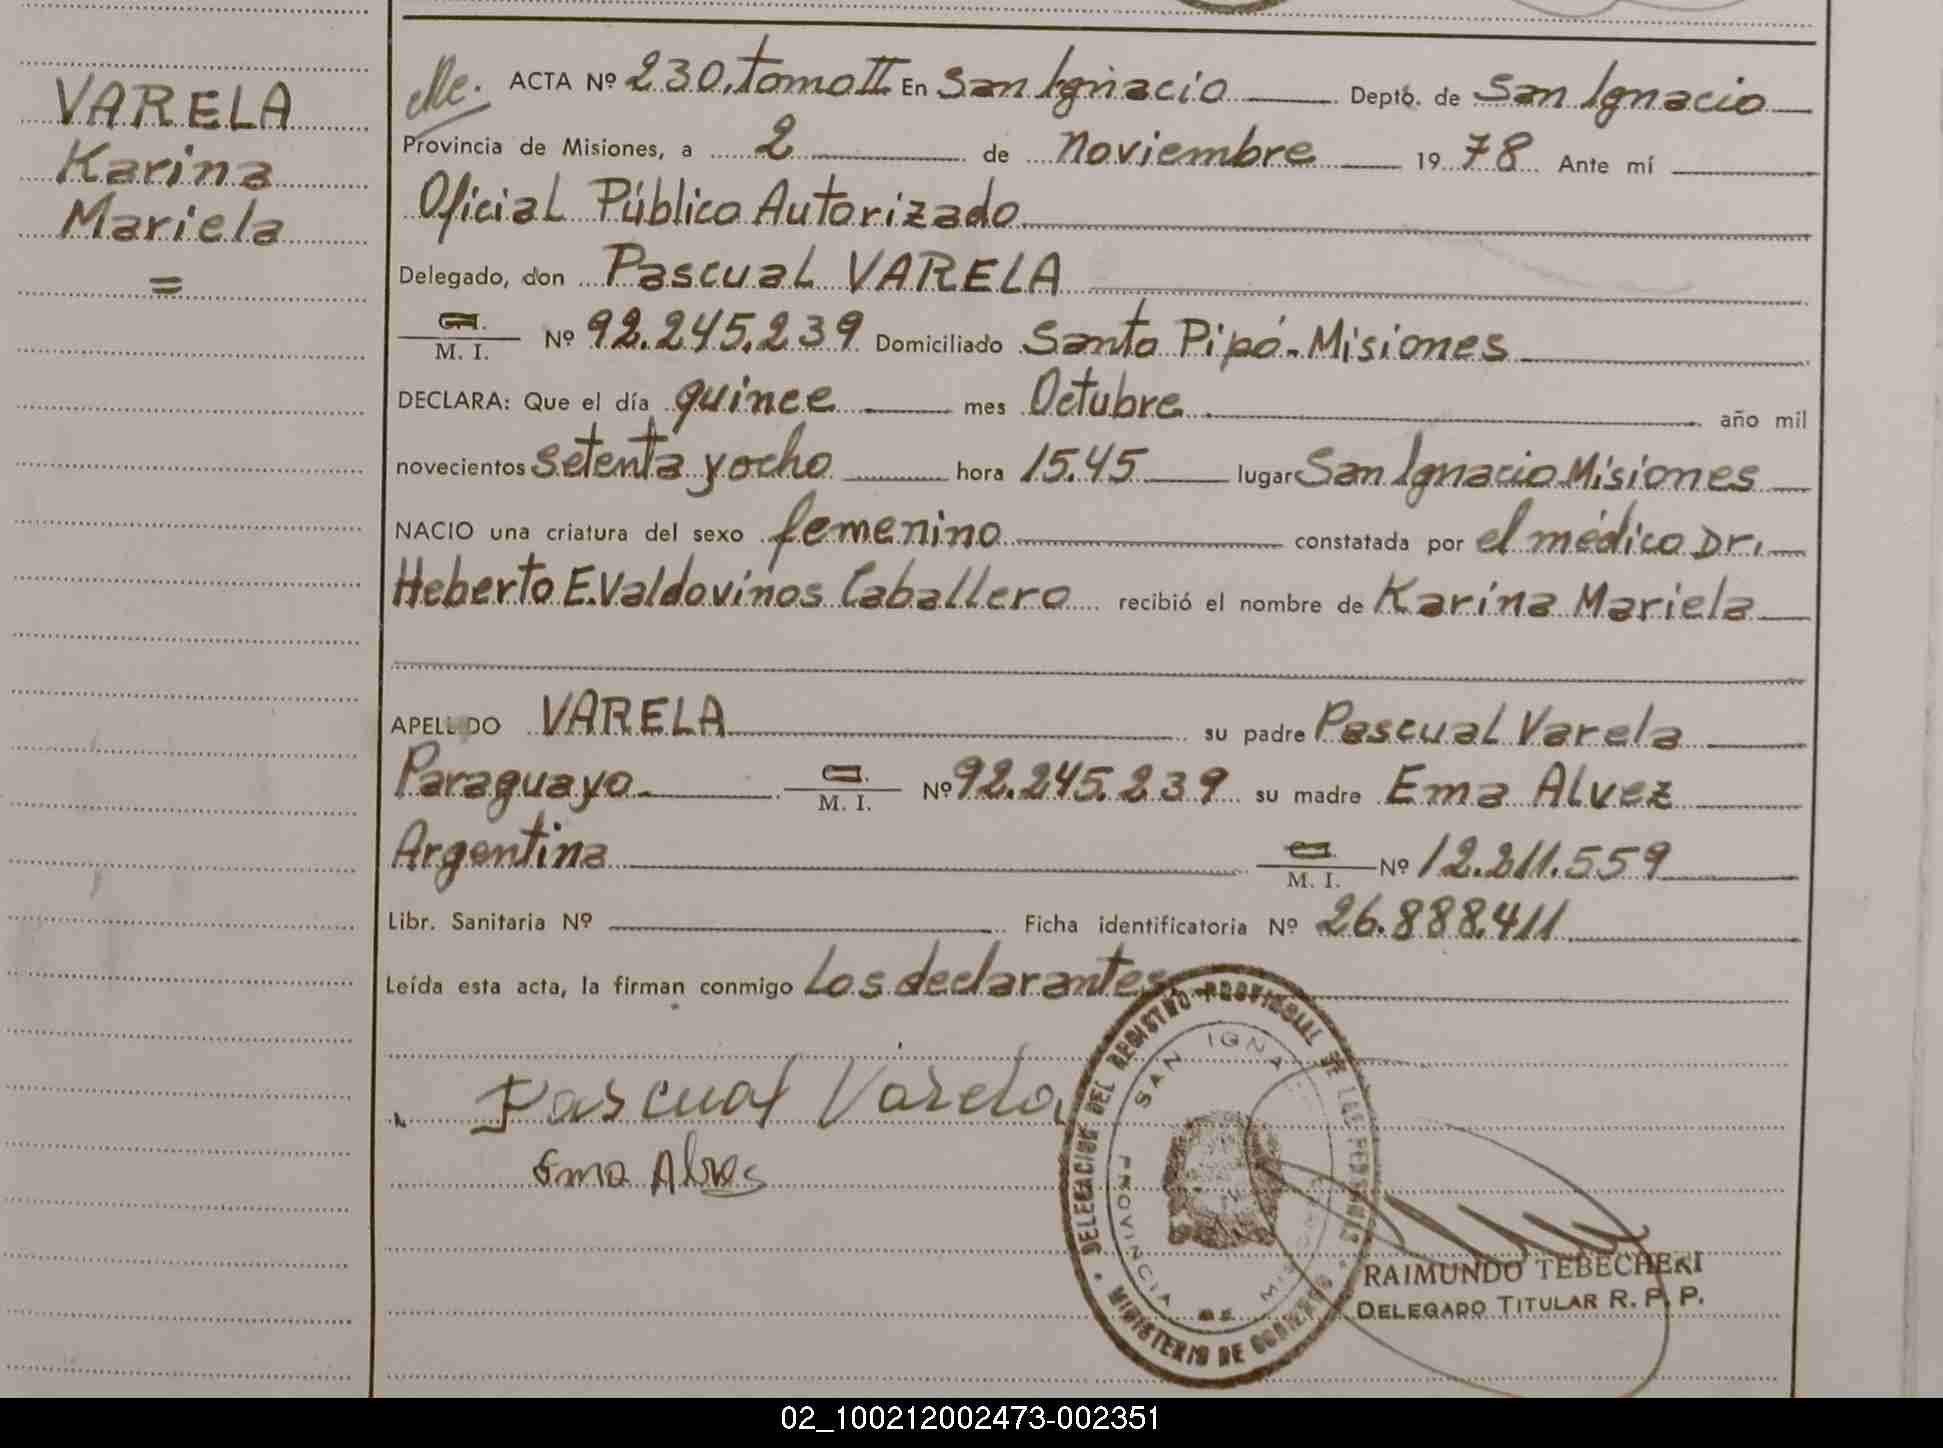 VARELA
Karina
Mariela
=
ACTA Nº 230, tomo II En San Ignacio Deptō. de San Ignacio
Provincia de Misiones, a 2 de Noviembre 19 78 Ante mí
Oficial Público Autorizado
Delegado, don Pascual VARELA
M. I. Nº 92.245.239 Domiciliado Santo Pipó - Misiones
DECLARA: Que el día quince mes Octubre año mil
novecientos setenta y ocho hora 15.45 lugar San Ignacio Misiones
NACIO una criatura del sexo femenino constatada por el médico Dr.
Heberto E. Valdovinos Caballero recibió el nombre de Karina Mariela
APELLIDO VARELA su padre Pascual Varela
Paraguayo M. I. Nº 92.245.239 su madre Ema Alvez
Argentina M. I. Nº 12.211.559
Libr. Sanitaria Nº Ficha identificatoria Nº 26.888.411
Leída esta acta, la firman conmigo Los declarantes
Pascual Varela
Ema Alves
DELEGACION DEL REGISTRO PROVINCIAL DE LAS PERSONAS
SAN IGNA
PROVINCIA DE MISIONES
MINISTERIO DE GOBIERNO
RAIMUNDO TEBECHERI
DELEGADO TITULAR R. P. P.
02_100212002473-002351